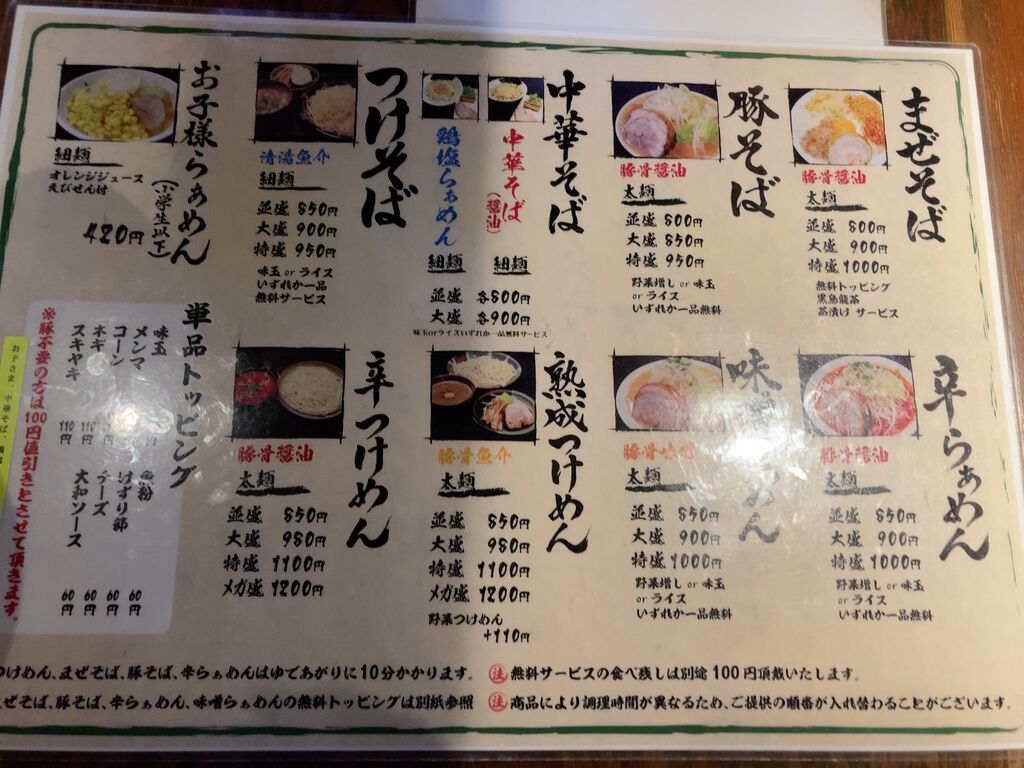 まぜそば
豚骨醤油
太麺
並盛 800円
大盛 900円
特盛 1000円
無料トッピング
黒烏龍茶
茶漬け サービス
豚そば
豚骨醤油
太麺
並盛 800円
大盛 850円
特盛 950円
野菜増し or 味玉
or ライス
いずれか一品無料
中華そば
中華そば
(醤油)
細麺
鶏塩らぁめん
細麺
並盛 各800円
大盛 各900円
味玉orライスいずれか一品無料サービス
つけそば
清湯魚介
細麺
並盛 850円
大盛 900円
特盛 950円
味玉 or ライス
いずれか一品
無料サービス
お子様らぁめん
(小学生以下)
細麺
オレンジジュース
えびせん付
420円
辛らぁめん
豚骨醤油
太麺
並盛 850円
大盛 900円
特盛 1000円
野菜増し or 味玉
or ライス
いずれか一品無料
味 めん
豚骨味噌
太麺
並盛 850円
大盛 900円
特盛 1000円
野菜増し or 味玉
or ライス
いずれか一品無料
熟成つけめん
豚骨魚介
太麺
並盛 850円
大盛 980円
特盛 1100円
メガ盛 1200円
野菜つけめん
+110円
辛つけめん
豚骨醤油
太麺
並盛 850円
大盛 980円
特盛 1100円
メガ盛 1200円
単品トッピング
味玉
メンマ
コーン
ネギ
スキヤキ
110円
110円
魚粉 60円
けずり節 60円
チーズ 60円
大和ソース 60円
※豚不要の方は100円値引きとさせて頂きます。
お子さま、中華そば、
つけめん、まぜそば、豚そば、辛らぁめんはゆであがりに10分かかります。
ぜそば、豚そば、辛らぁめん、味噌らぁめんの無料トッピングは別紙参照
注 無料サービスの食べ残しは別途100円頂戴いたします。
注 商品により調理時間が異なるため、ご提供の順番が入れ替わることがございます。